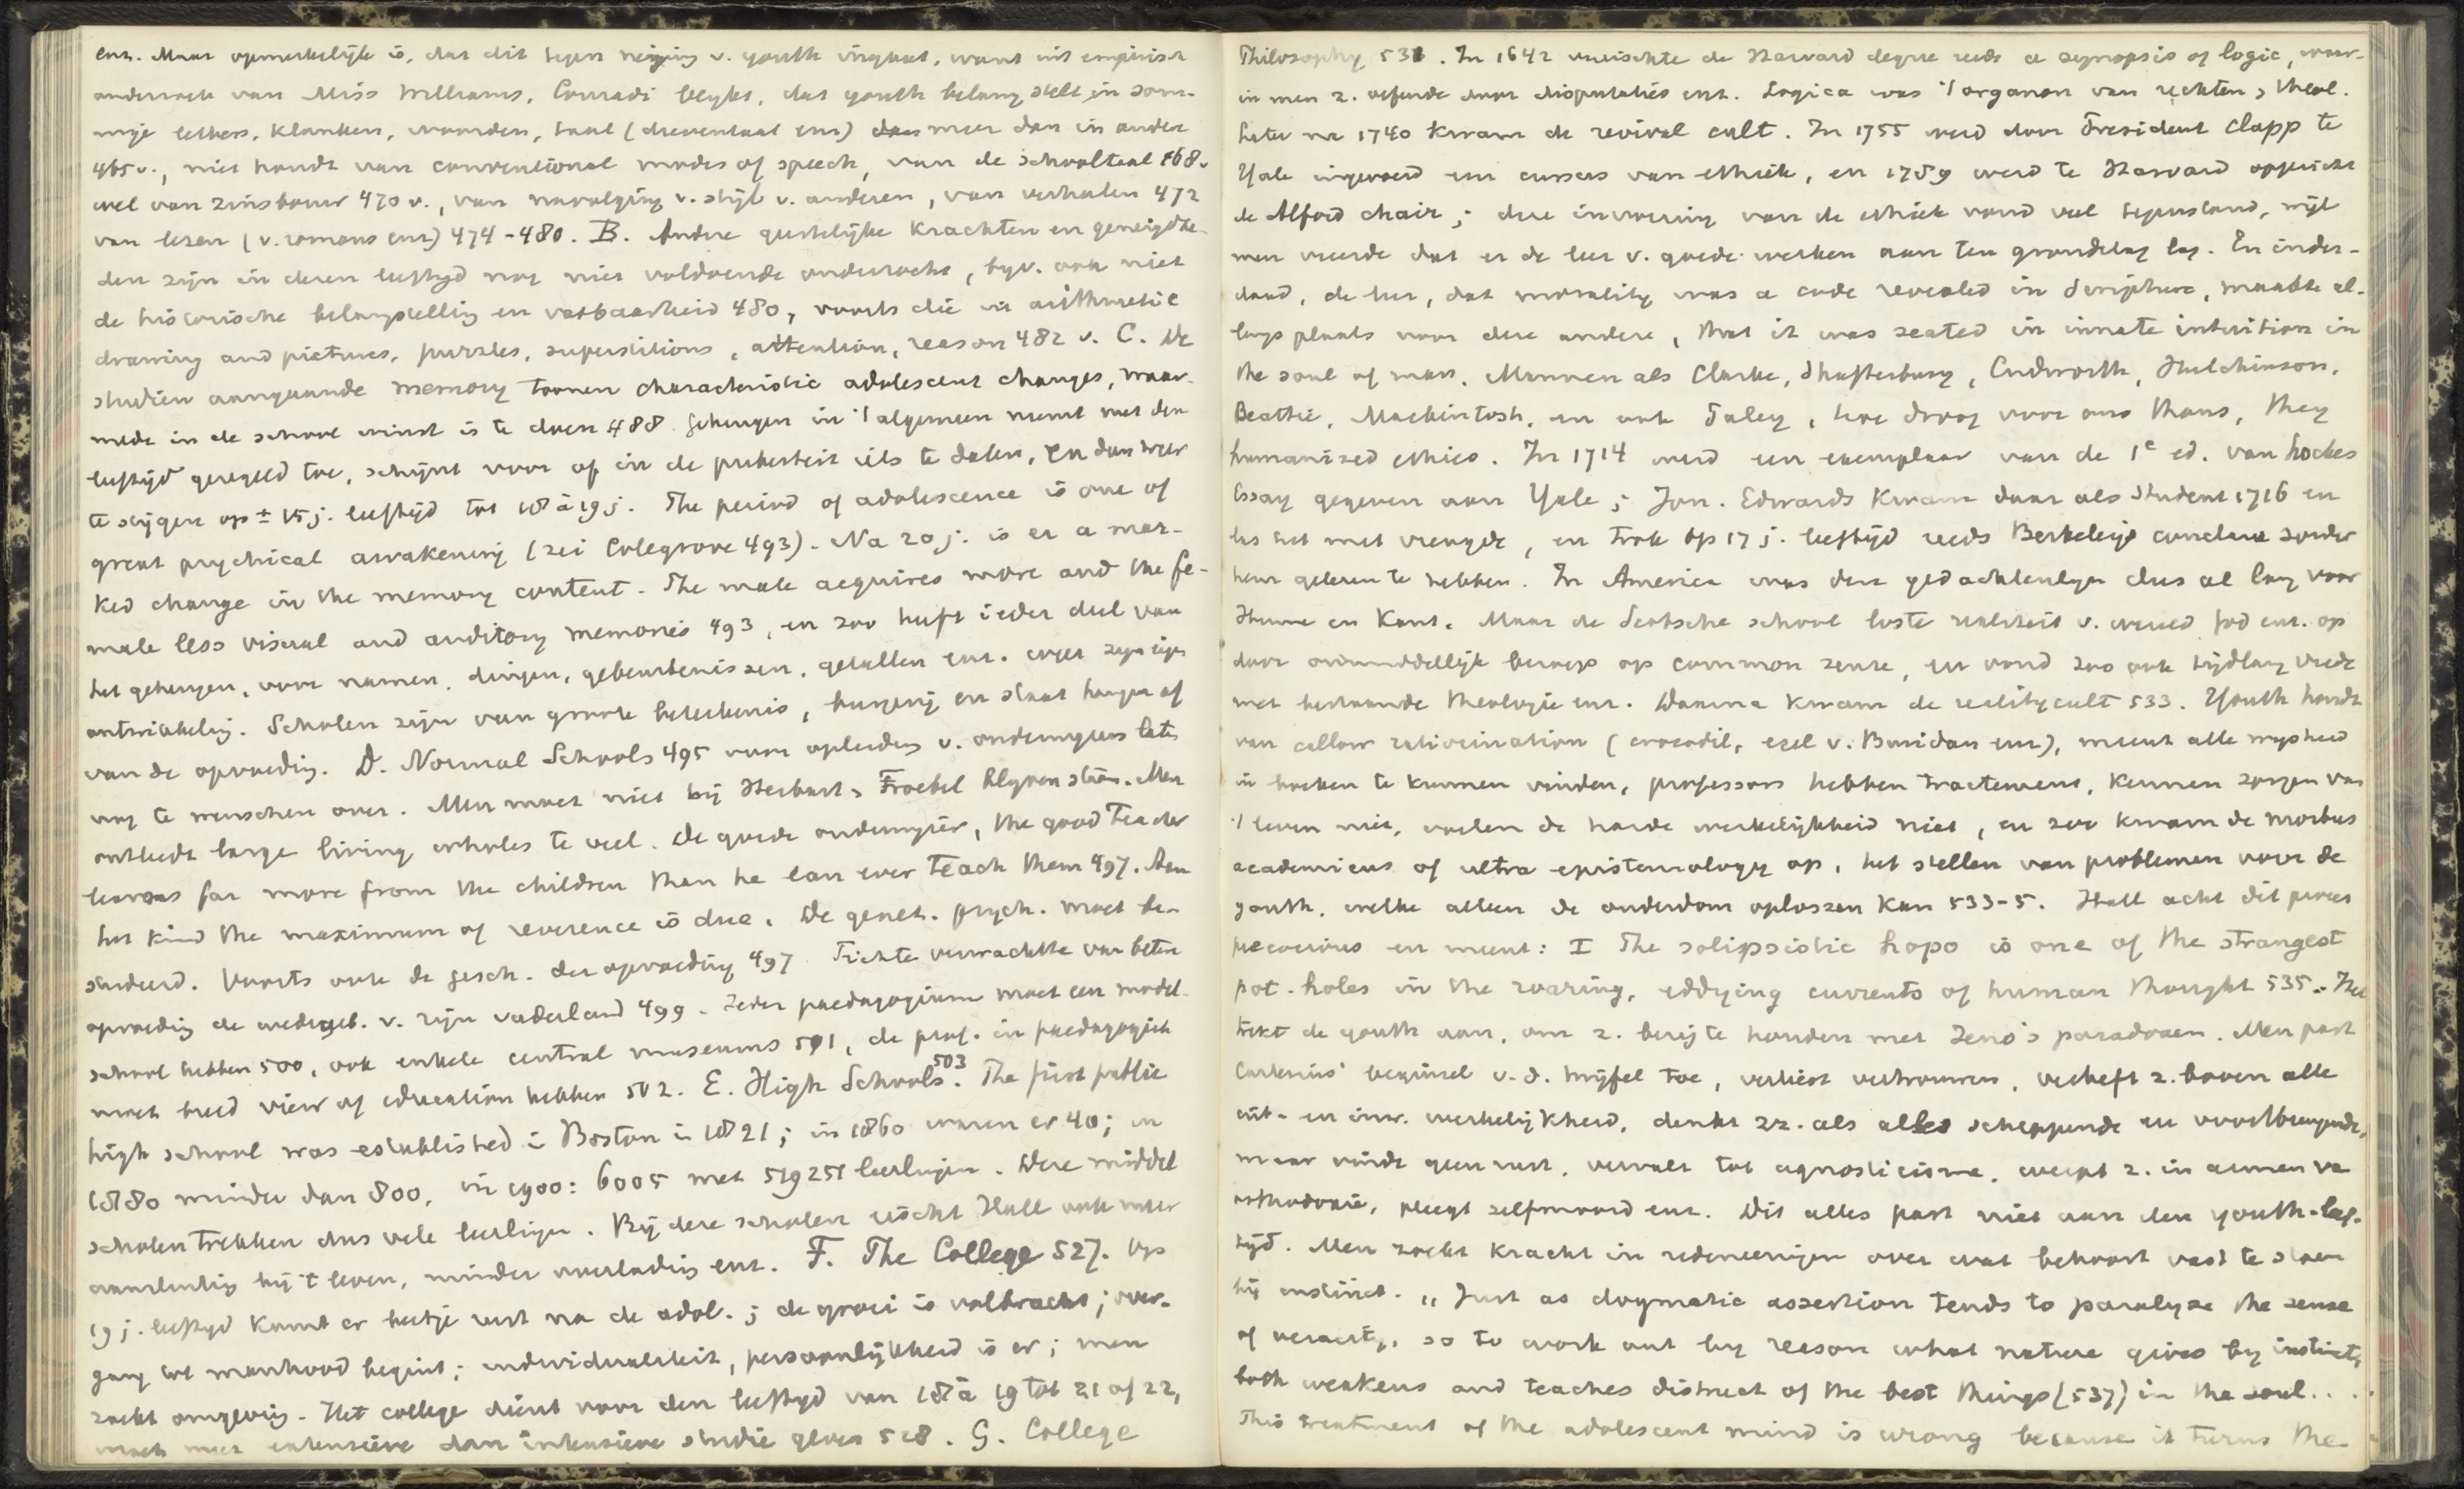 enz. Maar opmerkelijk is, dat dit tegen neiging v. youth ingaat, want uit empirisch
onderzoek van Miss Williams, Conradi blijkt, dat youth belang stelt in som-
mige letters, klanken, woorden, taal (dieventaal enz) meer dan in andere
465 v., niet houdt van conventional modes of speech, van de schooltaal 468 v
wel van zinsbouw 470 v., van navolging v. stijl v. anderen, van verhalen 472
van lezen (v. romans enz) 474-480. B. Andere geestelijke krachten en geneigdhe-
den zijn in dezen leeftijd nog niet voldoende onderzocht, bijv. ook niet
de historische belangstelling en vatbaarheid 480, voorts die in arithmetic
drawing and pictures, puzzles, superstitions, attention, reason 482 v. C. De
studien aangaande memory toonen characteristic adolescent changes, waar-
mede in de school winst is te doen 488. Geheugen in 't algemeen neemt met den
leeftijd geregeld toe, schijnt voor of in de puberteit iets te dalen, en dan weer
te stijgen op ± 15 j. leeftijd tot 18 à 19 j. The period of adolescence is one of
great psychical awakening (zei Colegrove 493). Na 20 j. is er a mar-
ked change in the memory content. The male acquires more and the fe-
male less visual and auditory memories 493, en zoo heeft ieder deel van
het geheugen, voor namen, dingen, gebeurtenissen, getallen enz. weer zijn eigen
ontwikkeling. Scholen zijn van groote beteekenis, burgerij en staat hangen af
van de opvoeding. D. Normal Schools 495 voor opleiding v. onderwijzers laten
nog te wenschen over. Men moet niet bij Herbart, Froebel blijven staan. Men
ontleedt large living wholes te veel. De goede onderwijzer, the good teacher
learns far more from the children than he can ever teach them 497. Aan
het kind the maximum of reverence is due. De genet. psych. moet be-
studeerd. Voorts ook de gesch. der opvoeding 497 Fichte verwachtte van betere
opvoeding de wedergeb. v. zijn vaderland 499. Ieder paedagogium moet een model-
school hebben 500, ook enkele central museums 501, de prof. in paedagogiek
moet breed view of education hebben 502. E. High Schools 503. The first public
high school was established in Boston in 1821; in 1860 waren er 40; in
1880 minder dan 800, in 1900: 6005 met 519251 leerlingen. Deze middel
scholen trekken dus vele leerlingen. Bij deze scholen eischt Hall ook meer
aansluiting bij 't leven, minder overlading enz. F. The College 527. Op
19 j. leeftijd komt er beetje rust na de adol.; de groei is volbracht; over-
gang tot manhood begint; individualiteit, persoonlijkheid is er; men
zoekt omgeving. Het college dient voor den leeftijd van 18 à 19 tot 21 of 22,
moet meer extensieve dan intensieve studie geven 528. G. College
Philosophy 531. In 1642 vereischte de Harvard degree reeds a synopsis of logic, waar-
in men z. oefende door disputaties enz. Logica was 't organon van rechten, theol.
Later na 1740 kwam de revival cult. In 1755 werd door President Clapp te
Yale ingevoerd een cursus van ethiek, en 1789 werd te Harvard opgericht
de Alford chair; deze invoering van de ethiek vond veel tegenstand, wijl
men vreesde dat er de leer v. goede werken aan ten grondslag lag. En inder-
daad, de leer, dat morality was a code revealed in Scripture, maakte al-
lengs plaats voor deze andere, that it was seated in innate intuition in
the soul of man. Mannen als Clarke, Shaftesbury, Cudworth, Hutchinson,
Beattie, Mackintosh, en ook Paley, hoe droog voor ons thans, they
humanized ethics. In 1714 werd een exemplaar van de 1e ed. van Lockes
Essay gegeven aan Yale; Jon. Edwards kwam daar als student 1716 en
las het met vreugde, en trok op 17 j. leeftijd reeds Berkeleys conclusie zonder
hem gelezen te hebben. In America was deze gedachtenlijn dus al lang voor
Hume en Kant. Maar de Schotsche school loste realiteit v. wereld god enz. op
door onmiddellijk beroep op common sense, en vond zoo ook tijdlang vrede
met bestaande theologie enz. Daarna kwam de reality cult 533. Youth houdt
van callow ratiocination (crocodil, ezel v. Buridan enz), meent alle wijsheid
in boeken te kunnen vinden, professors hebben tractement, kennen zorgen van
't leven niet, voelen de harde werkelijkheid niet, en zoo kwam de morbus
academicus of ultra epistemology op, het stellen van problemen voor de
youth, welke alleen de ouderdom oplossen kan 533-5. Hall acht dit proces
precocious en meent: I The solipsistic hopo is one of the strangest
pot-holes in the roaring, eddying currents of human thought 535. Het
trekt de youth aan, om z. bezig te houden met Zeno's paradoxen. Men past
Cartesius' beginsel v. d. twijfel toe, verliest vertrouwen, verheft z. boven alle
uit- en inw. werkelijkheid, denkt zz. als alles scheppende en voortbrengende,
maar vindt geen rust, vervalt tot agnosticisme, werpt z. in armen van
orthodoxie, pleegt zelfmoord enz. Dit alles past niet aan den youth-leef-
tijd. Men zoekt kracht in redeneeringen over wat behoort vast te staan
bij instinct. „Just as dogmatic assertion tends to paralyze the sense
of veracity, so to work out by reason what nature gives by instinct,
both weakens and teaches distrust of the best things (537) in the soul...
This treatment of the adolescent mind is wrong because it turns the